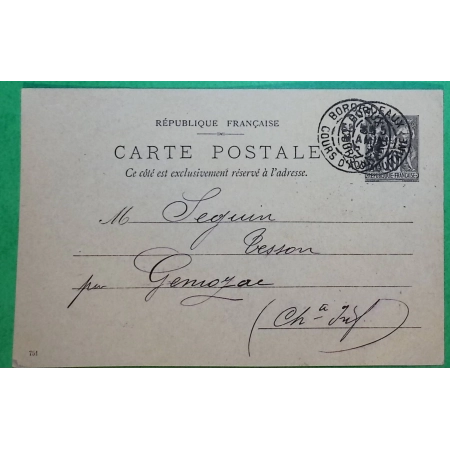 RÉPUBLIQUE FRANÇAISE
CARTE POSTALE
Ce côté est exclusivement réservé à l'adresse.
BORDEAUX
COURS D'AQUITAINE
RÉPUBLIQUE FRANÇAISE
M Seguin
Tesson
par Gemozac
(Ch^a Inf)
751